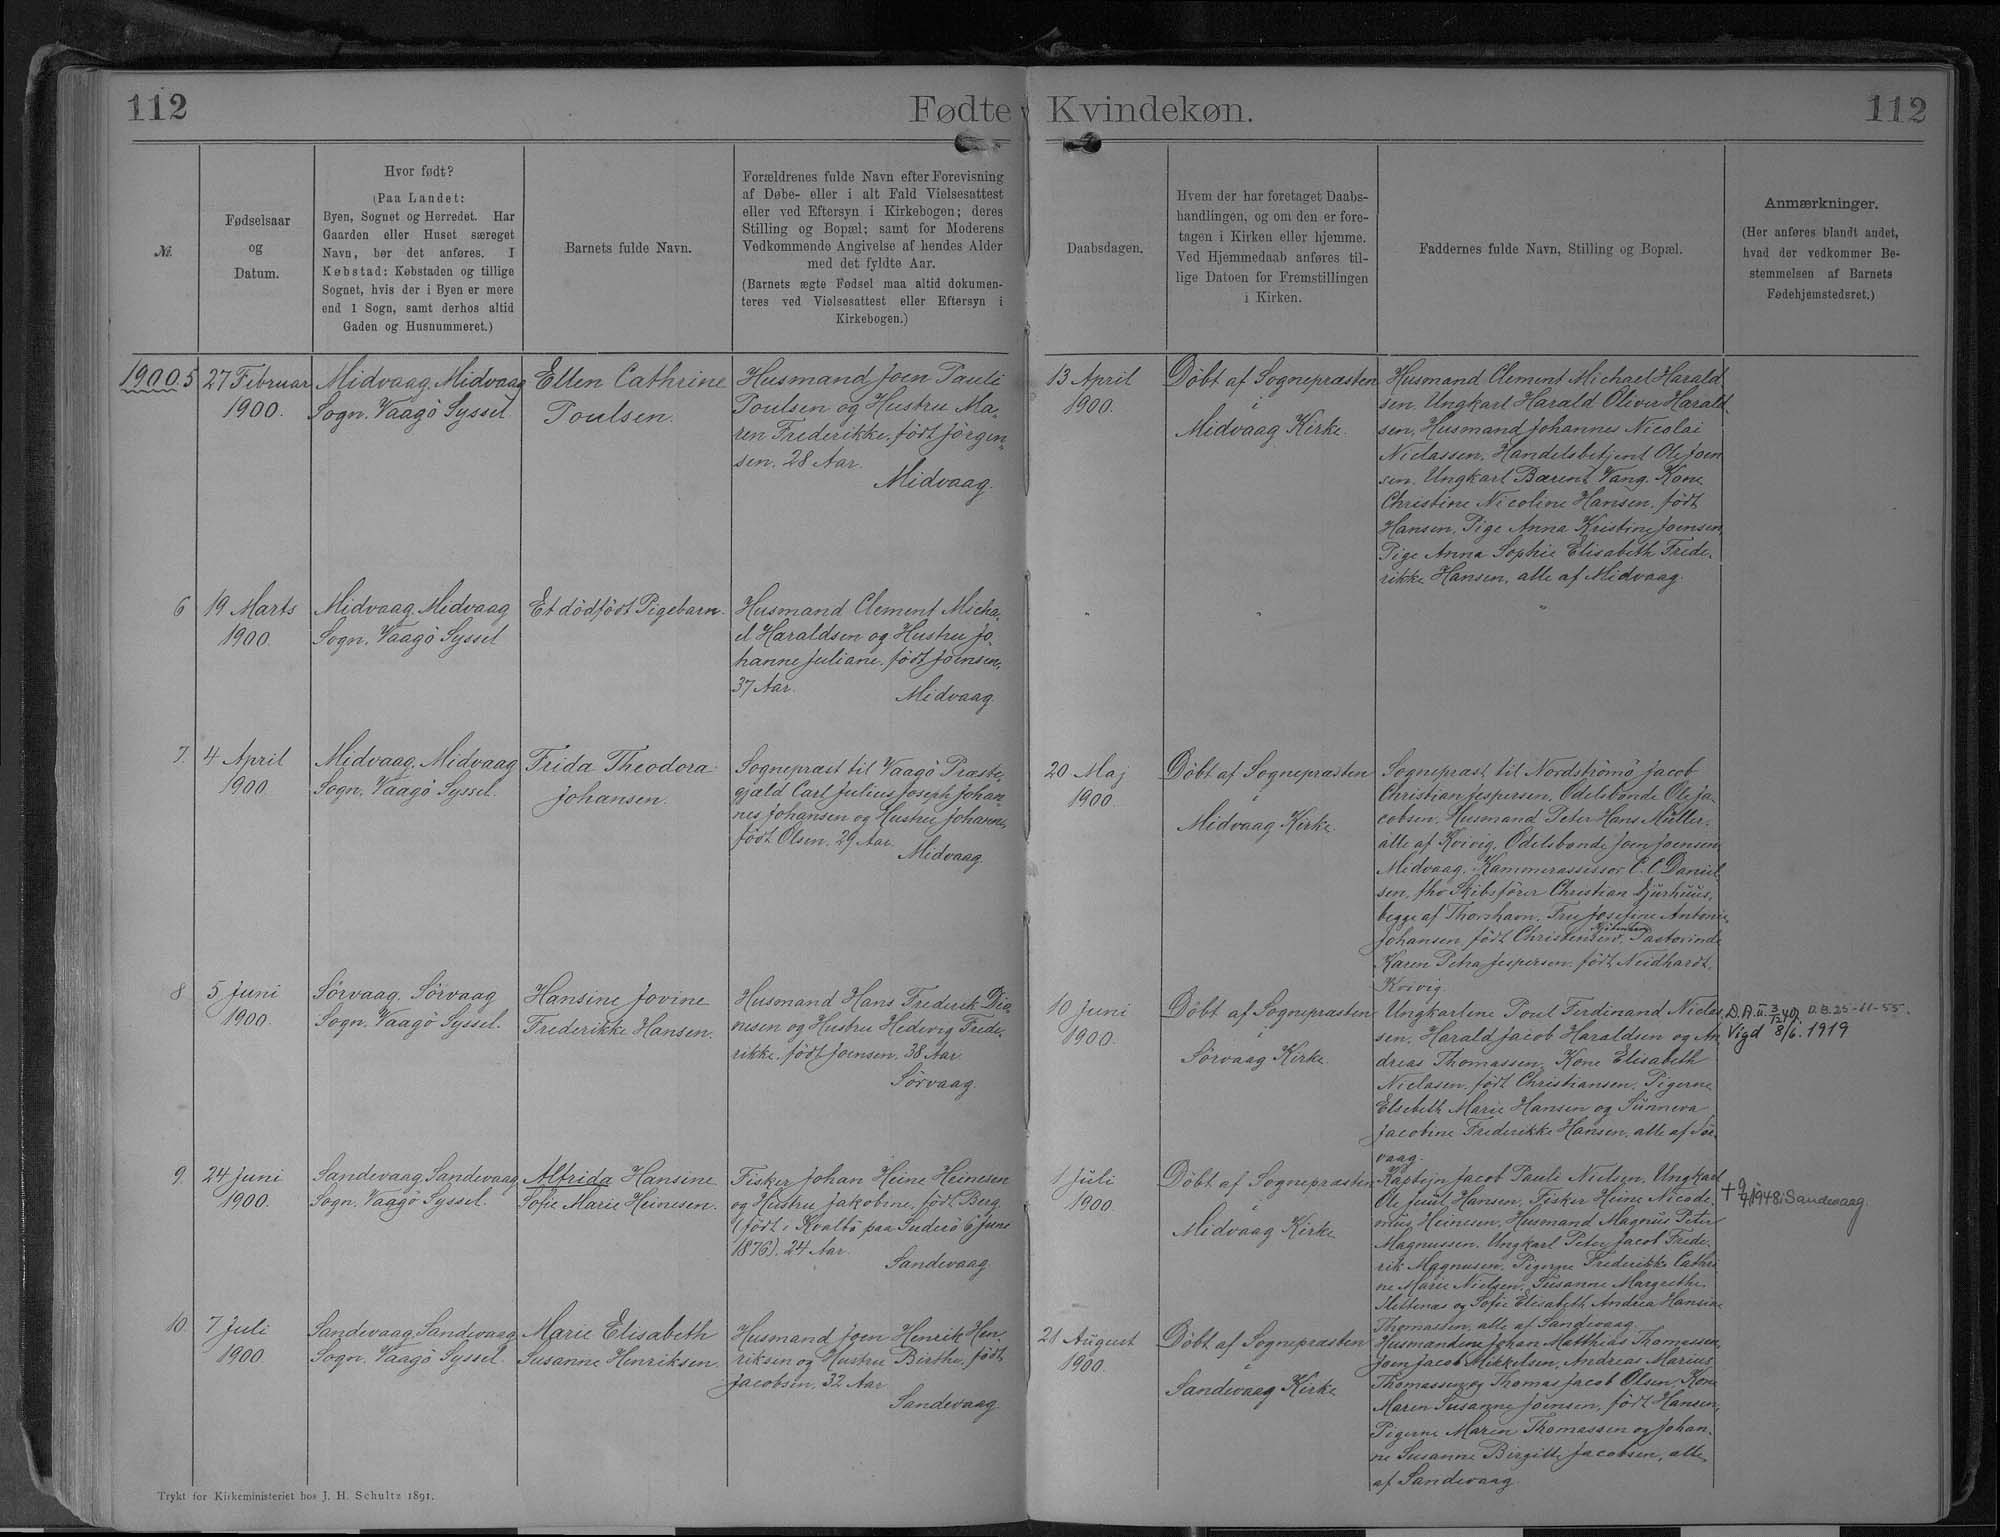 112
Fødte
Kvindekøn.
112
Nr.
Fødselsaar
og
Datum.
Hvor født?
(Paa Landet:
Byen, Sognet og Herredet. Har
Gaarden eller Huset særeget
Navn, bør det anføres. I
Købstad: Købstaden og tillige
Sognet, hvis der i Byen er mere
end 1 Sogn, samt derhos altid
Gaden og Husnummeret.)
Barnets fulde Navn.
Forældrenes fulde Navn efter Forevisning
af Døbe- eller i alt Fald Vielsesattest
eller ved Eftersyn i Kirkebogen; deres
Stilling og Bopæl; samt for Moderens
Vedkommende Angivelse af hendes Alder
med det fyldte Aar.
(Barnets ægte Fødsel maa altid dokumen-
teres ved Vielsesattest eller Eftersyn i
Kirkebogen.)
Daabsdagen.
Hvem der har foretaget Daabs-
handlingen, og om den er fore-
tagen i Kirken eller hjemme.
Ved Hjemmedaab anføres til-
lige Datoen for Fremstillingen
i Kirken.
Faddernes fulde Navn, Stilling og Bopæl.
Anmærkninger.
(Her anføres blandt andet,
hvad der vedkommer Be-
stemmelsen af Barnets
Fødehjemstedsret.)
1900. 5
27 Februar
1900.
Midvaag, Midvaag
Sogn. Vaagö Syssel
Ellen Cathrine
Poulsen.
Husmand Joen Pauli
Poulsen og Hustru Ma-
ren Frederikke, född Jörgen-
sen. 28 Aar.
Midvaag.
13 April
1900.
Döbt af Sognepræsten
i
Midvaag Kirke.
Husmand Clement Michael Harald
sen, Ungkarl Harald Oliver Harald
sen, Husmand Johannes Nicolai
Niclassen, Handelsbetjent Ole Joen
sen, Ungkarl Barent Vang. Kone
Christine Nicoline Hansen, född
Hansen, Pige Anna Kristine Joensen,
Pige Anna Sophie Elisabeth Frede-
rikke Hansen, alle af Midvaag.
6
19 Marts
1900.
Midvaag, Midvaag
Sogn, Vaagö Syssel
Et dödfödt Pigebarn.
Husmand Clement Micha-
el Haraldsen og Hustru Jo-
hanne Juliane, född Joensen,
37 Aar.
Midvaag.
"
"
"
7.
4 April
1900
Midvaag, Midvaag
Sogn, Vaagö Syssel.
Frida Theodora
Johansen.
Sognepræst til Vaagö Præste-
gjæld Carl Julius Joseph Johan-
nes Johansen og Hustru Johanne,
född Olsen, 29 Aar.
Midvaag.
20 Maj
1900.
Döbt af Sognepræsten
i
Midvaag Kirke.
Sognepræst til Nordströmö Jacob
Christian Jespersen, Odelsbonde Ole Ja-
cobsen, Husmand Peter Hans Müller,
alle af Kvivig, Odelsbonde Joen Joensen
Midvaag, Kammerassessor C. C. Daniel
sen, fhv Skibsförer Christian Djurhuus,
begge af Thorshavn. Fru Josefine Antonie
Johansen, född Christensen, Kjöbenhavn, Pastorinde
Karen Petra Jespersen, född Neidhardt,
Kvivig.
8
5 Juni
1900.
Sörvaag, Sörvaag
Sogn, Vaagö Syssel.
Hansine Jovine
Frederikke Hansen.
Husmand Hans Frederik Dio-
nesen og Hustru Hedevig Frede-
rikke, född Joensen, 38 Aar
Sörvaag.
10 Juni
1900.
Döbt af Sognepræsten
i
Sörvaag Kirke.
Ungkarlene Poul Ferdinand Niclas
sen, Harald Jacob Haraldsen og An
dreas Thomassen, Kone Elisabeth
Niclasen, född Christiansen, Pigerne
Elsebeth Marie Hansen og Sunneva
Jacobine Frederikke Hansen, alle af Sör-
vaag.
D.A. II. 3/12 40, D.B. 25-11-55.
Vigd 8/6. 1919
9.
24 Juni
1900.
Sandevaag, Sandevaag
Sogn, Vaagö Syssel.
Alfrida Hansine
Sofie Marie Heinesen.
Fisker Johan Heine Heinesen
og Hustru Jakobine, född Berg
(född i Kvalbö paa Suderö 6 Juni
1876). 24 Aar.
Sandevaag
1 Juli
1900.
Döbt af Sognepræsten
i
Midvaag Kirke
Kaptejn Jacob Pauli Nielsen, Ungkarl
Ole Juul Hansen, Fisker Heine Nicode-
mus Heinesen, Husmand Magnus Peter
Magnussen, Ungkarl Peter Jacob Frede-
rik Magnusen, Pigerne Frederikke Cathri
ne Marie Nielsen, Susanne Margrethe
Slettenas og Sofie Elisabeth Andrea Hansine
Thomassen, alle af Sandevaag.
1948 i Sandevaag.
10
7 Juli
1900
Sandevaag, Sandevaag
Sogn, Vaagö Syssel.
Marie Elisabeth
Susanne Henriksen.
Husmand Joen Henrik Hen-
riksen og Hustru Birthe, född
Jacobsen, 32 Aar
Sandevaag
21 August
1900.
Döbt af Sognepræsten
i
Sandevaag Kirke
Husmandene Johan Matthias Thomassen,
Joen Jacob Mikkelsen, Andreas Marius
Thomassen og Thomas Jacob Olsen, Kone
Maren Susanne Joensen, född Hansen,
Pigerne Maren Thomassen og Johan-
ne Susanne Birgitte Jacobsen, alle
af Sandevaag
Trykt for Kirkeministeriet hos J. H. Schultz 1891.